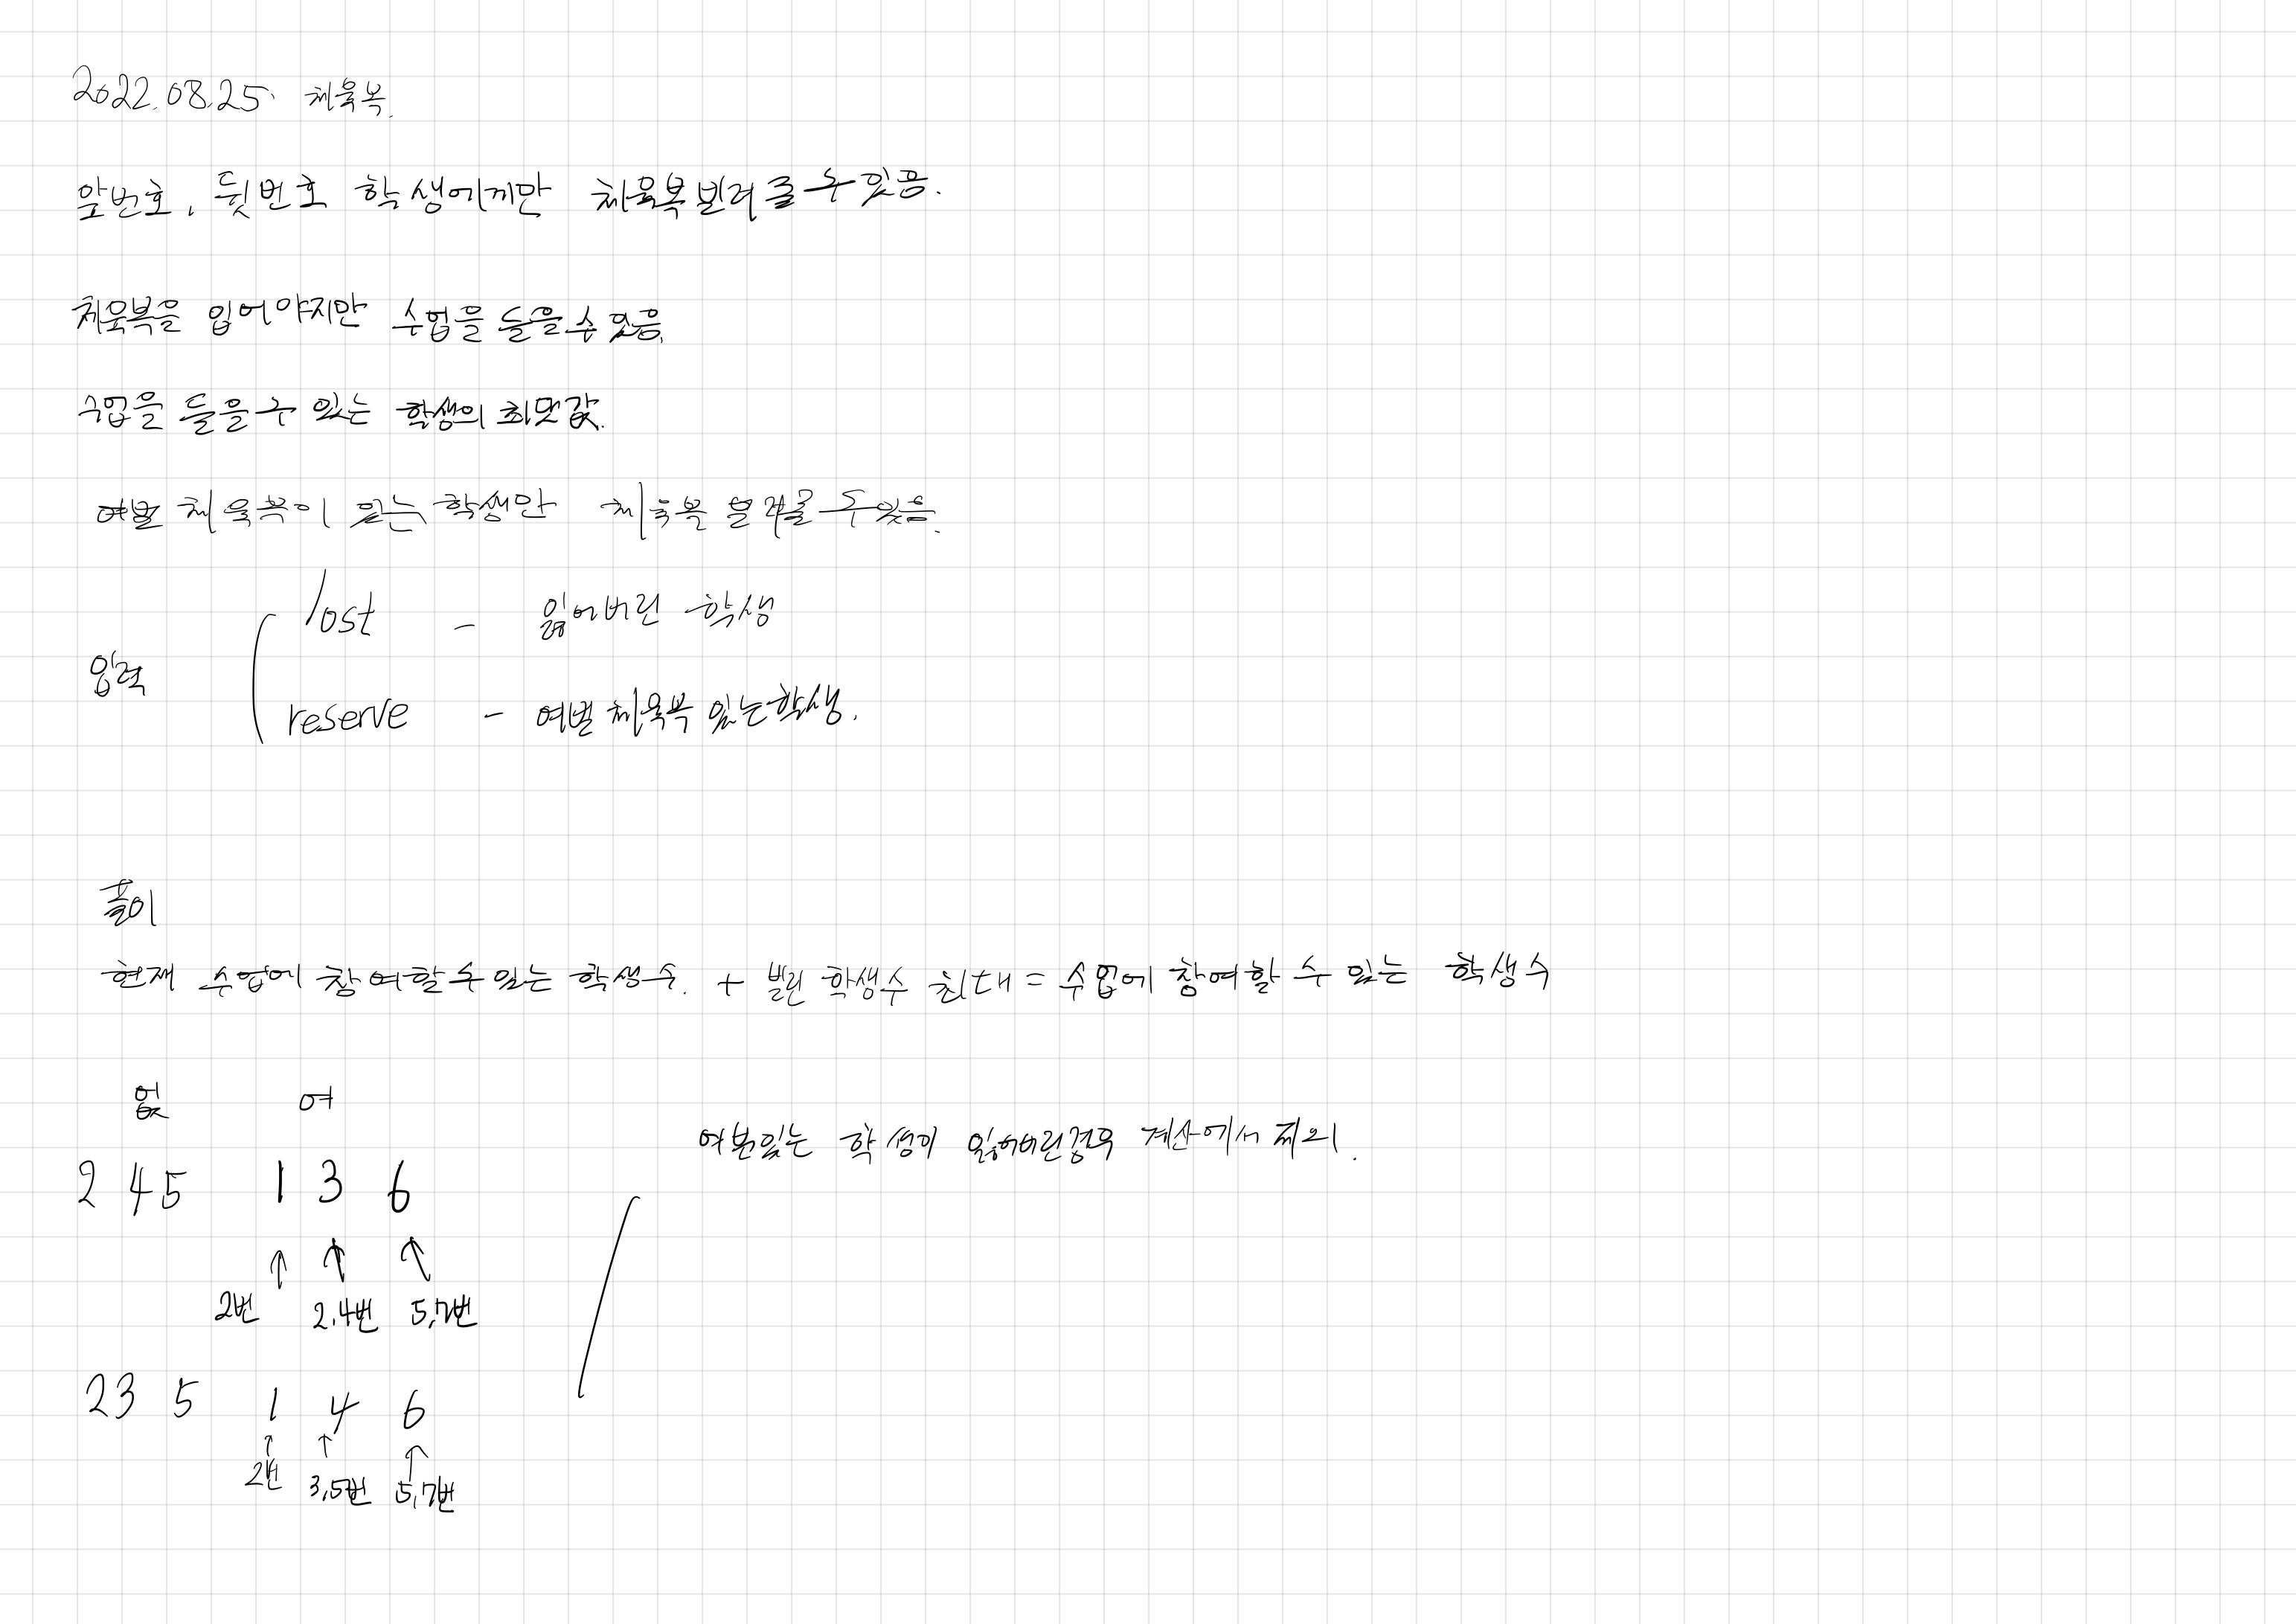 2022.08.25. 체육복.
앞번호, 뒷번호 학생에게만 체육복 빌려줄 수 있음.
체육복을 입어야지만 수업을 들을 수 있음.
수업을 들을 수 있는 학생의 최댓값.
여벌 체육복이 있는 학생만 체육복 빌려줄 수 있음.
lost - 잃어버린 학생
입력
reserve - 여벌 체육복 있는 학생.
풀이
현재 수업에 참여할 수 있는 학생수. + 빌린 학생수 최대 = 수업에 참여할 수 있는 학생수
없 여
여분있는 학생이 잃어버린경우 계산에서 제외.
2 4 5 1 3 6
↑ ↑ ↑
2번 2,4번 5,7번
2 3 5 1 4 6
↑ ↑ ↑
2번 3,5번 5,7번